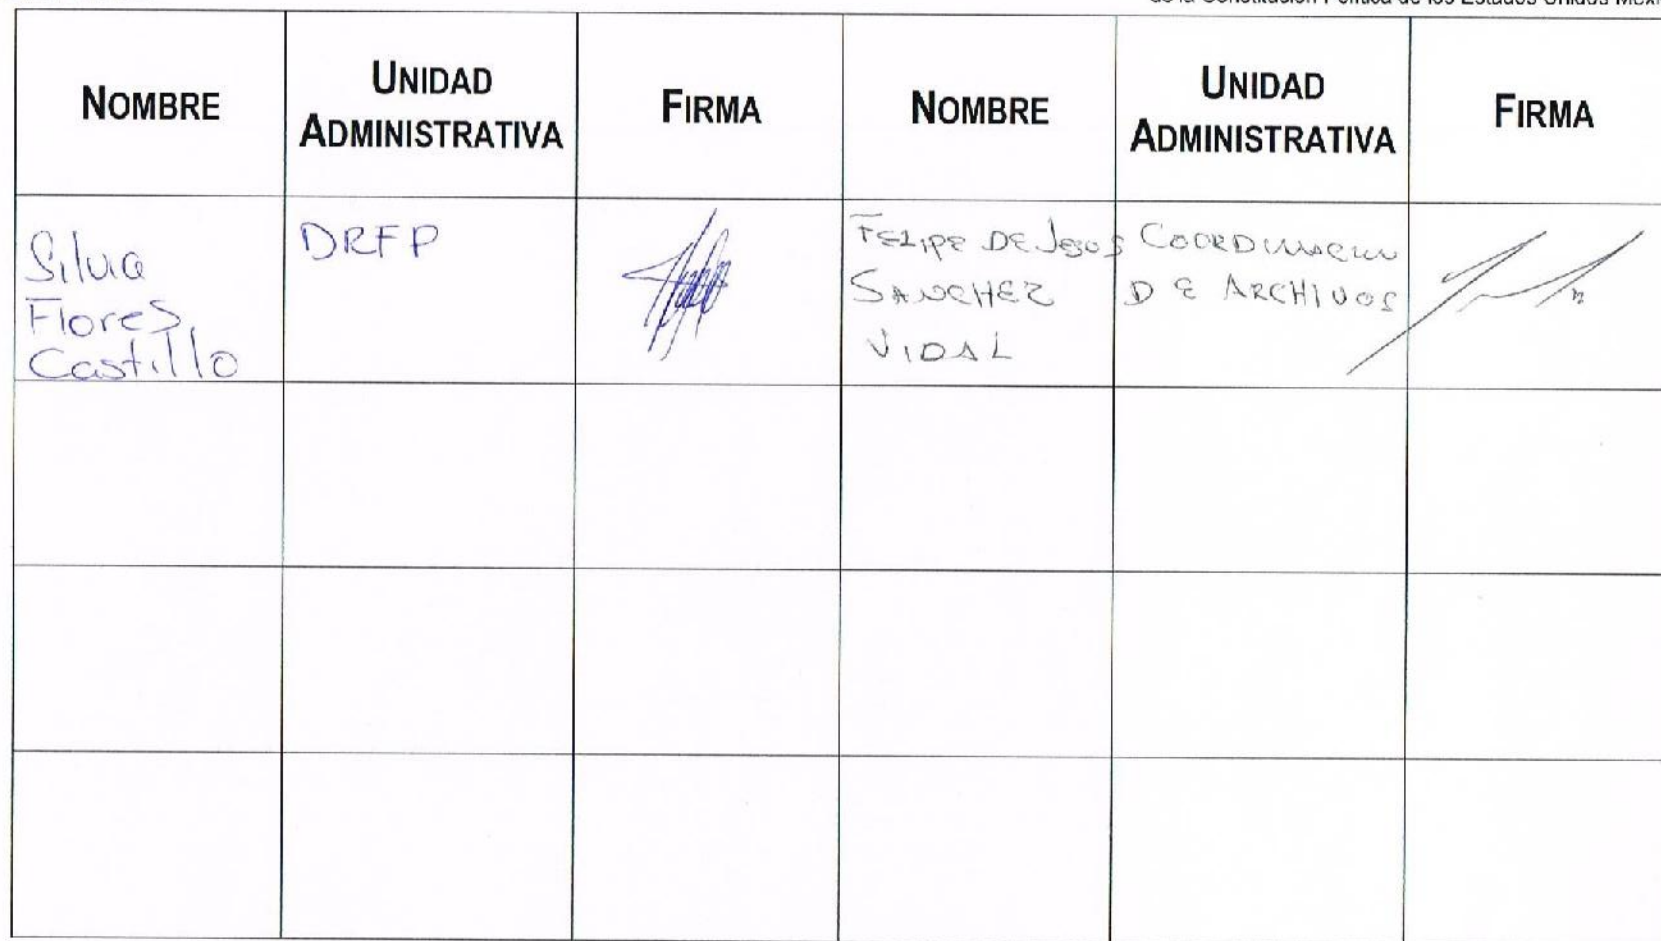 NOMBRE
UNIDAD
ADMINISTRATIVA
FIRMA
NOMBRE
UNIDAD
ADMINISTRATIVA
FIRMA
Silvia
Flores
Castillo
DRFP
FELIPE DE JESUS
SANCHEZ
VIDAL
COORDINACION
DE ARCHIVOS